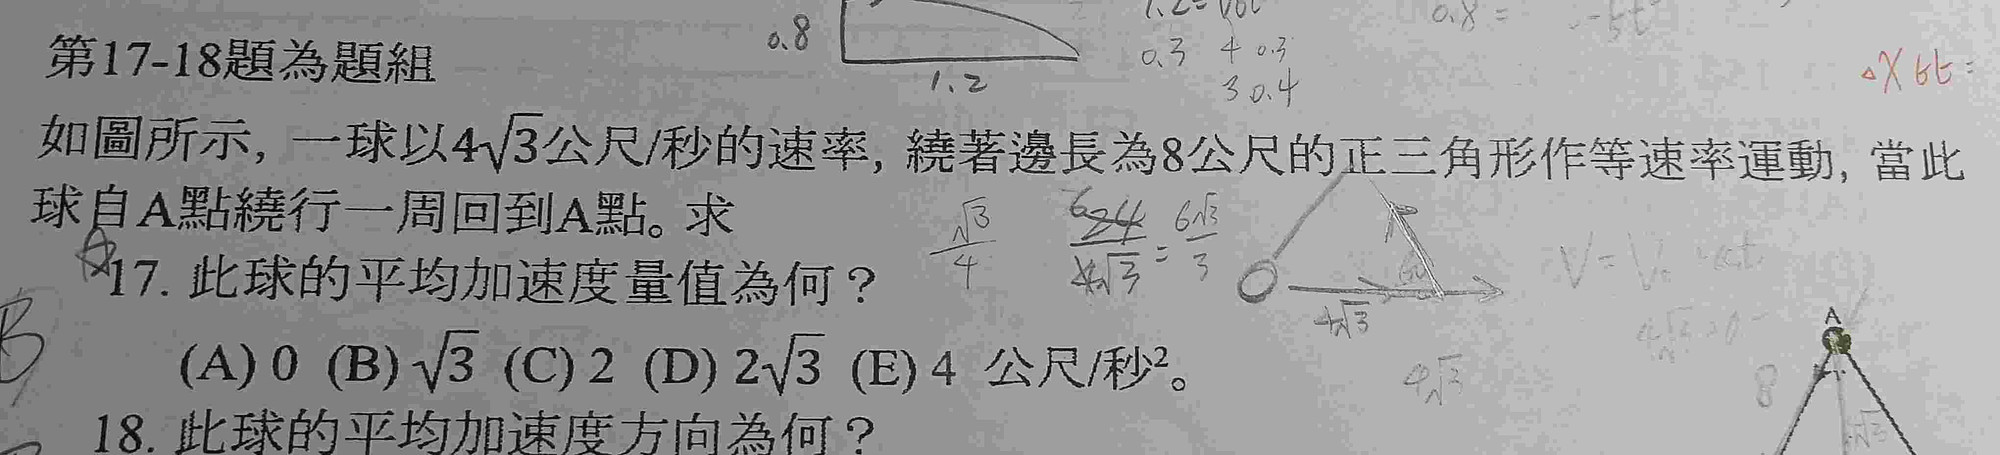 0.8
1.2
0.3 4 0.3
3 0.4
0.8 =
△X 6t =
第17-18題為題組
如圖所示, 一球以4√3公尺/秒的速率, 繞著邊長為8公尺的正三角形作等速率運動, 當此
球自A點繞行一周回到A點。求
√3/4
24/4√3 = 6√3/3
17. 此球的平均加速度量值為何？
4√3
A
B
(A) 0 (B) √3 (C) 2 (D) 2√3 (E) 4 公尺/秒²。
4√3
8
18. 此球的平均加速度方向為何？